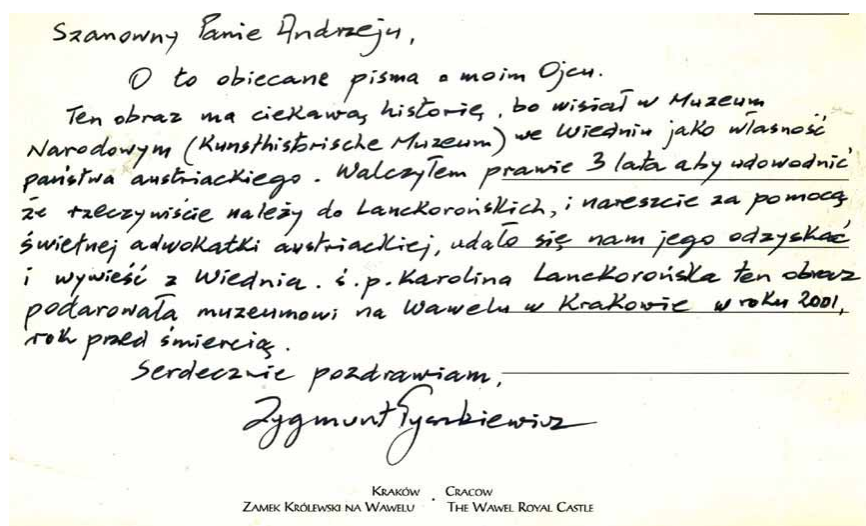 Szanowny Panie Andrzeju,
O to obiecane pisma o moim Ojcu.
Ten obraz ma ciekawą historię, bo wisiał w Muzeum
Narodowym (Kunsthistorische Muzeum) we Wiedniu jako własność
państwa austriackiego. Walczyłem prawie 3 lata aby udowodnić
że rzeczywiście należy do Lanckorońskich, i nareszcie za pomocą
świetnej adwokatki austriackiej, udało się nam jego odzyskać
i wywieść z Wiednia. ś.p. Karolina Lanckorońska ten obraz
podarowała muzeumowi na Wawelu w Krakowie w roku 2001,
rok przed śmiercią.
Serdecznie pozdrawiam,
Zygmunt Tyszkiewicz
Kraków · Cracow
Zamek Królewski na Wawelu The Wawel Royal Castle